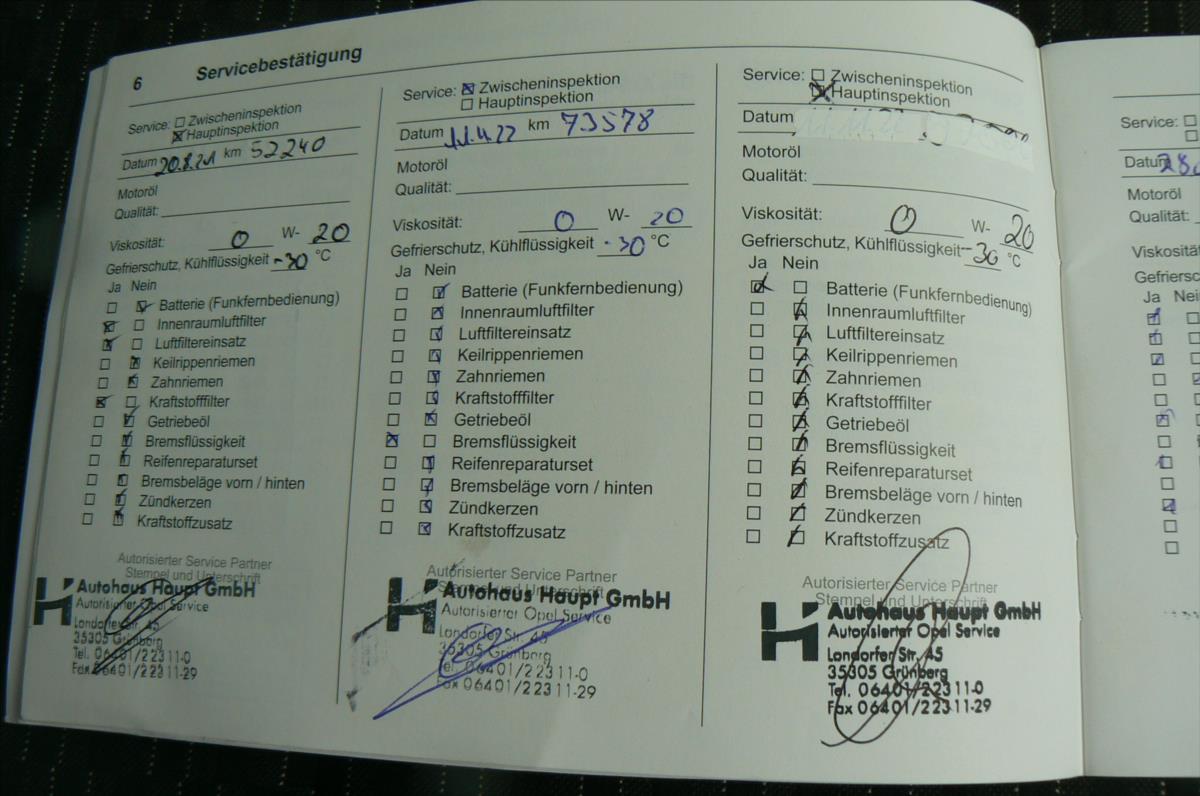 6 Servicebestätigung
Service: Zwischeninspektion
Hauptinspektion
Datum 20.8.21 km 52240
Motoröl
Qualität:
Viskosität: 0 W- 20
Gefrierschutz, Kühlflüssigkeit -30 °C
Ja Nein
Batterie (Funkfernbedienung)
Innenraumluftfilter
Luftfiltereinsatz
Keilrippenriemen
Zahnriemen
Kraftstofffilter
Getriebeöl
Bremsflüssigkeit
Reifenreparaturset
Bremsbeläge vorn / hinten
Zündkerzen
Kraftstoffzusatz
Autorisierter Service Partner
Stempel und Unterschrift
Autohaus Haupt GmbH
Autorisierter Opel Service
Londorfer Str. 45
35305 Grünberg
Tel. 06401/22311-0
Fax 06401/22311-29
Service: Zwischeninspektion
Hauptinspektion
Datum km 73578
Motoröl
Qualität:
Viskosität: 0 W- 20
Gefrierschutz, Kühlflüssigkeit -30 °C
Ja Nein
Batterie (Funkfernbedienung)
Innenraumluftfilter
Luftfiltereinsatz
Keilrippenriemen
Zahnriemen
Kraftstofffilter
Getriebeöl
Bremsflüssigkeit
Reifenreparaturset
Bremsbeläge vorn / hinten
Zündkerzen
Kraftstoffzusatz
Autorisierter Service Partner
Stempel und Unterschrift
Autohaus Haupt GmbH
Autorisierter Opel Service
Londorfer Str. 45
35305 Grünberg
Tel. 06401/22311-0
Fax 06401/22311-29
Service: Zwischeninspektion
Hauptinspektion
Datum
Motoröl
Qualität:
Viskosität: 0 W- 20
Gefrierschutz, Kühlflüssigkeit -30 °C
Ja Nein
Batterie (Funkfernbedienung)
Innenraumluftfilter
Luftfiltereinsatz
Keilrippenriemen
Zahnriemen
Kraftstofffilter
Getriebeöl
Bremsflüssigkeit
Reifenreparaturset
Bremsbeläge vorn / hinten
Zündkerzen
Kraftstoffzusatz
Autorisierter Service Partner
Stempel und Unterschrift
Autohaus Haupt GmbH
Autorisierter Opel Service
Londorfer Str. 45
35305 Grünberg
Tel. 06401/22311-0
Fax 06401/22311-29
Service:
Datum
Motoröl
Qualität:
Viskosität:
Ja